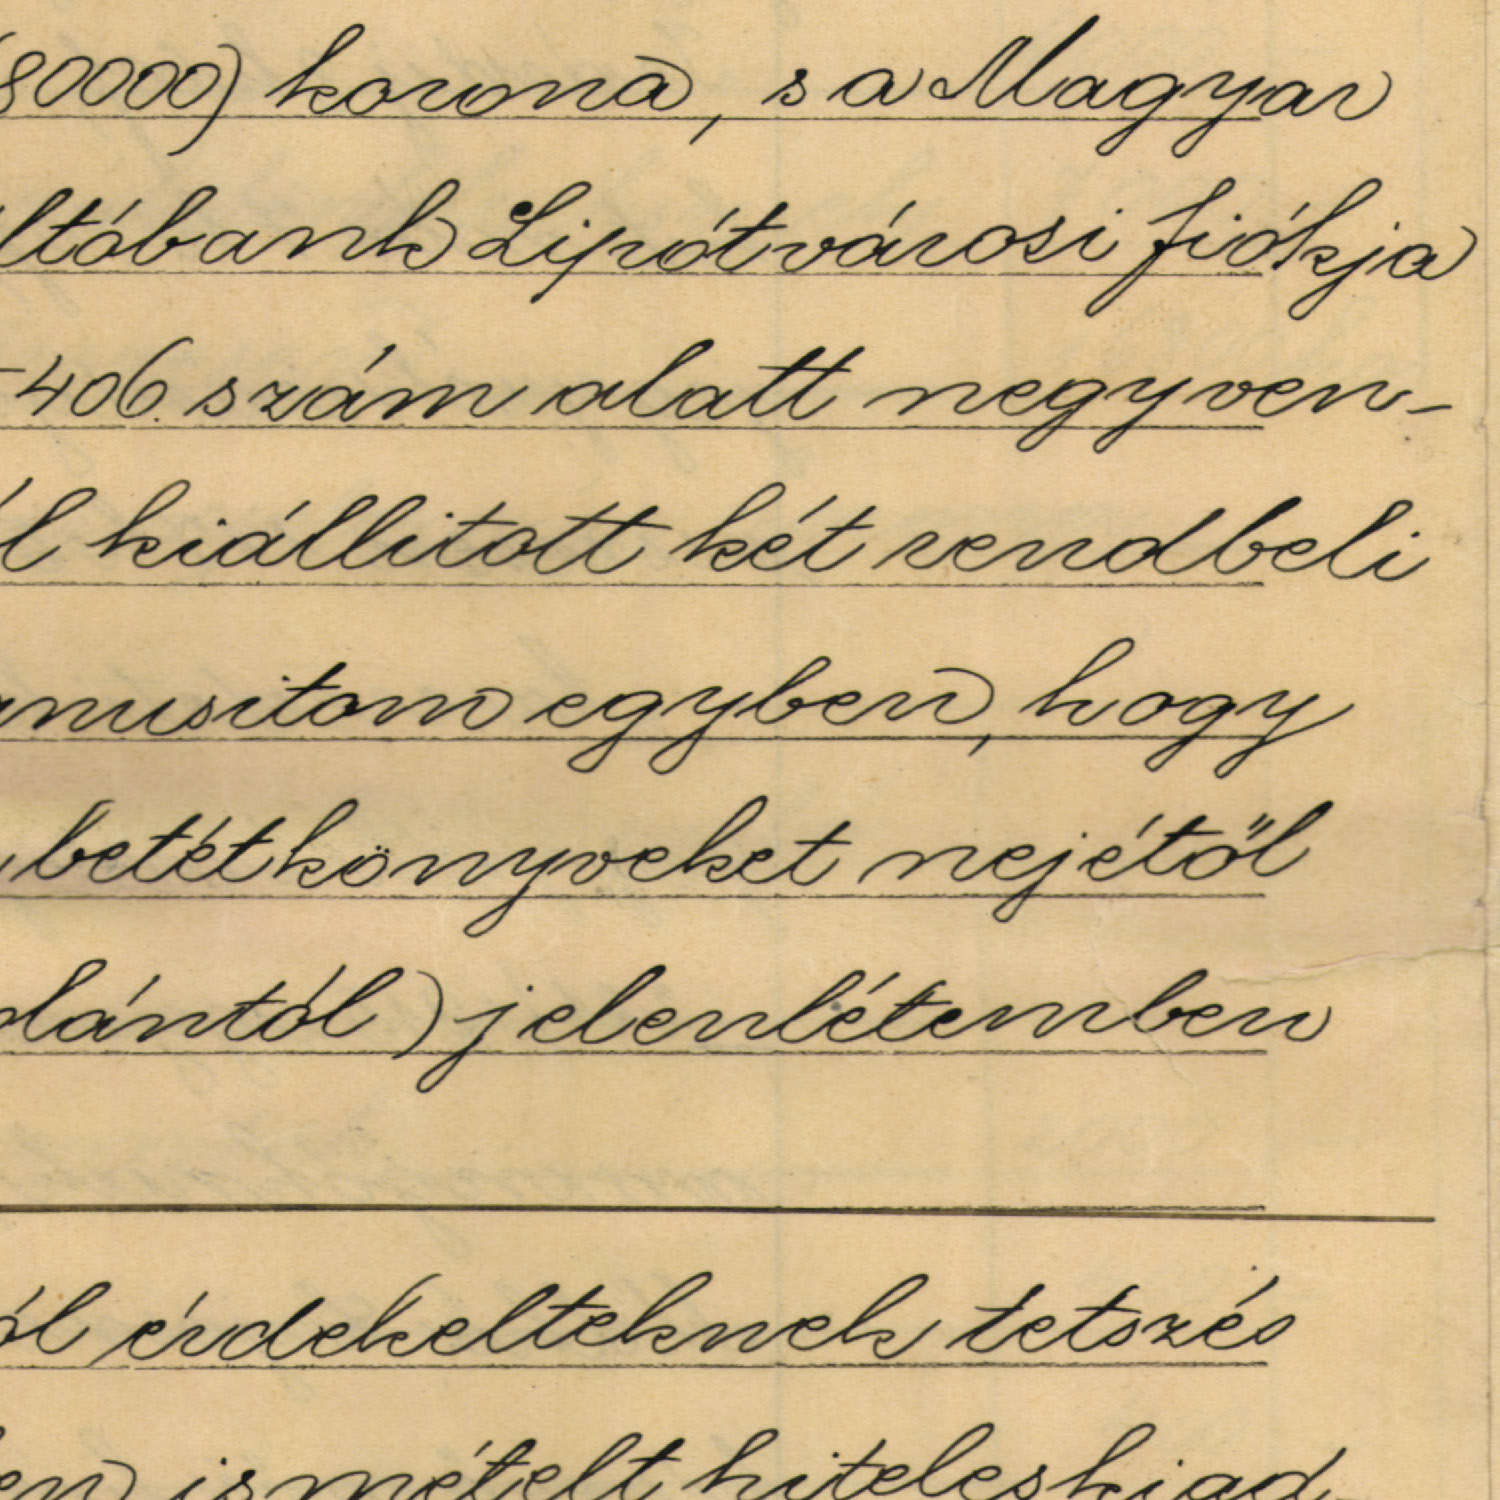 80000) korona, s a Magyar
ltóbank Lipótvárosi fiókja
-406. szám alatt negyven-
l kiállitott két rendbeli
nusitom egyben, hogy
betétkönyveket nejétől
lántól) jelenlétemben
ól érdekelteknek tetszés
en ismételt hiteles kiad-